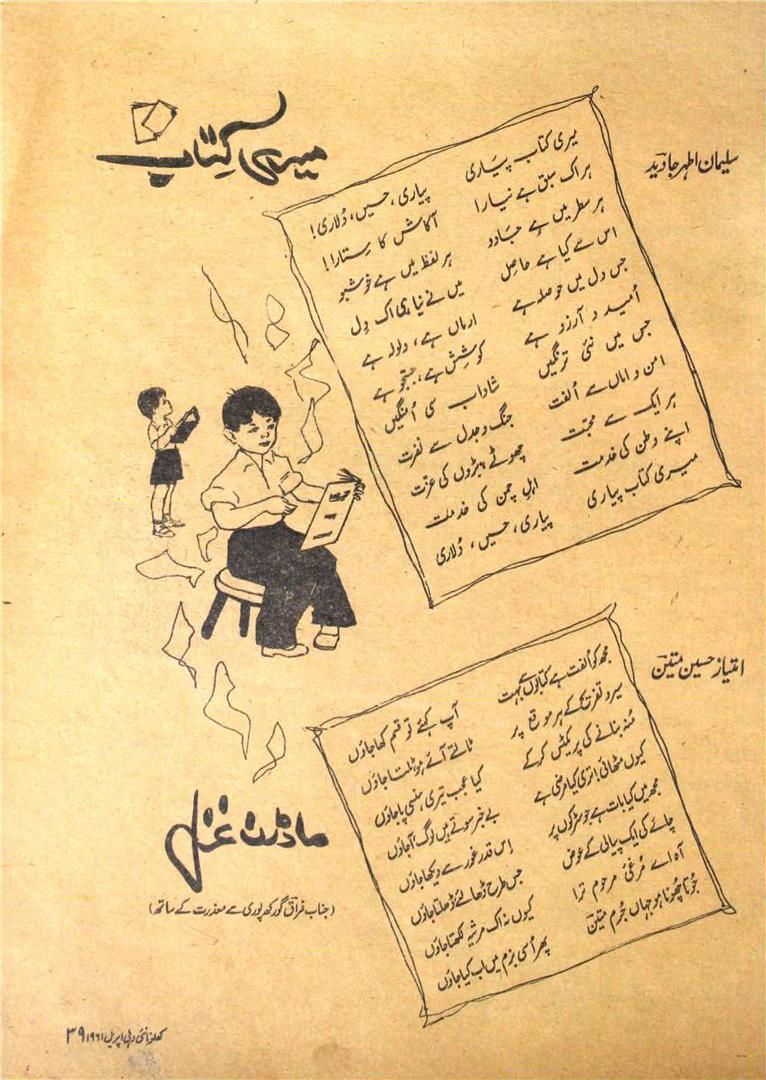 میری کتاب
سلیمان اطہر جاوید
میری کتاب پیاری
پیاری، حسیں، دُلاری!
ہر اک سبق ہے نیارا
آکاش کا سِتارا!
ہر سطر میں ہے جادو
ہر لفظ میں ہے خوشبو
اس سے کیا ہے حاصِل
میں نے نیا ہی اک دِل
جس دل میں حوصلہ ہے
ارماں ہے، ولولہ ہے
اُمید و آرزو ہے
کوشِش ہے، جستجو ہے
جس میں نئی ترنگیں
شاداب سی اُمنگیں
امن و اماں سے اُلفت
جنگ و جدل سے نفرت
ہر ایک سے محبّت
چھوٹے بڑوں کی عزّت
اپنے وطن کی خدمت
اہلِ چمن کی خدمت
میری کتاب پیاری
پیاری، حسیں، دُلاری
ماڈرن غزل
(جناب فراق گورکھپوری سے معذرت کے ساتھ)
امتیاز حسین متینؔ
مجھ کو اُلفت ہے کتابوں سے بہت
آپ کہئے تو قسم کھا جاؤں
سیر و تفریح کے ہر موقع پر
ٹالتے آئے ہو ٹلتا جاؤں
مُنہ بنانے کی پریکٹس کرکے
کیا عجب تیری ہنسی پا جاؤں
کیوں مٹھائی انڑی کیا مرضی ہے
بے خبر سوتے ہیں لوگ آ جاؤں
مجھ میں کیا بات ہے جو سڑکوں پر
اس قدر غور سے دیکھا جاؤں
چائے کی ایک پیالی کے عوض
جس طرح ڈھالئے ڈھلتا جاؤں
آہ اے مُرغئ مرحوم ترا
کیوں نہ اک مرثیہ لکھتا جاؤں
جُوتا چھونا ہو جہاں جُرم متینؔ
پھر اُسی بزم میں اب کیا جاؤں
کھلونا نئی دہلی اپریل ۱۹۶۱ ۳۹